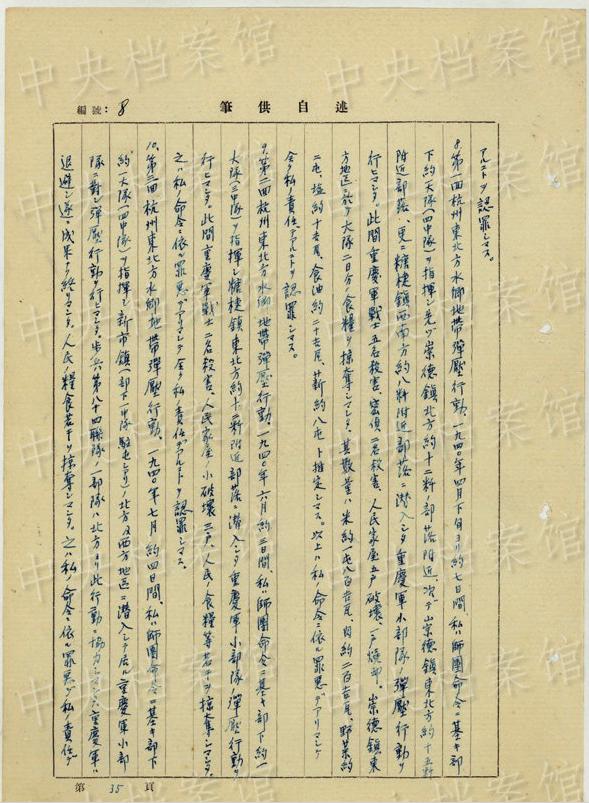 編號：8
述自供筆
アルコトヲ認罪シマス。
8.第一回杭州東北方水郷地帯彈壓行動、一九四〇年四月下旬ヨリ約七日間、私ハ師團命令ニ基キ部
下約一大隊（四中隊）ヲ指揮シ先ヅ崇德鎮北方約十二粁ノ部落附近、次デ崇德鎮東北方約十五粁
附近部落、更ニ塘棲鎮西南方約八粁附近部落ニ潜入シタ重慶軍小部隊ノ彈壓行動ヲ
行ヒマシタ。此間重慶軍戰士五名殺害、密偵二名殺害、人民家屋五戸破壊、一戸燒却。崇德鎮東
方地區ニ於テ大隊二日分ノ食糧ヲ掠奪シマシタ。其數量ハ米約一屯八百瓩、肉約二百瓩、野菜約
二屯、塩約十五瓩、食油約二十瓩、薪約八屯ト推定シマス。以上ハ私ノ命令ニ依ル罪惡デアリマシテ
全ク私ノ責任デアルコトヲ認罪シマス。
9.第二回杭州東北方水郷地帯彈壓行動、一九四〇年六月約三日間、私ハ師團命令ニ基キ部下約一
大隊（三中隊）ヲ指揮シ塘棲鎮東北方約十粁附近部落ニ潜入シタ重慶軍小部隊ノ彈壓行動ヲ
行ヒマシタ。此間重慶軍戰士二名殺害、人民家屋ノ小破壊二戸、人民ノ食糧等若干ヲ掠奪シマシタ。
之ハ私ノ命令ニ依ル罪惡デアリマシテ全ク私ノ責任デアルコトヲ認罪シマス。
10.第三回杭州東北方水郷地帯彈壓行動、一九四〇年七月約四日間、私ハ師團命令ニ基キ部下
約一大隊（四中隊）ヲ指揮シ新市鎮（部下一中隊駐屯シアリ）ノ北方及西方地區ニ潜入シテ居ル重慶軍小部
隊ニ對シ彈壓行動ヲ行ヒマシタ。歩兵第八十四聯隊ノ一部隊ハ北方ヨリ此行動ニ協力シマシタ。重慶軍ハ
退避シ遂ニ成果ナク終リマシタ。人民ノ糧食若干ヲ掠奪シマシタ。之ハ私ノ命令ニ依ル罪惡デ私ノ責任デ
第 35 頁
中央档案馆